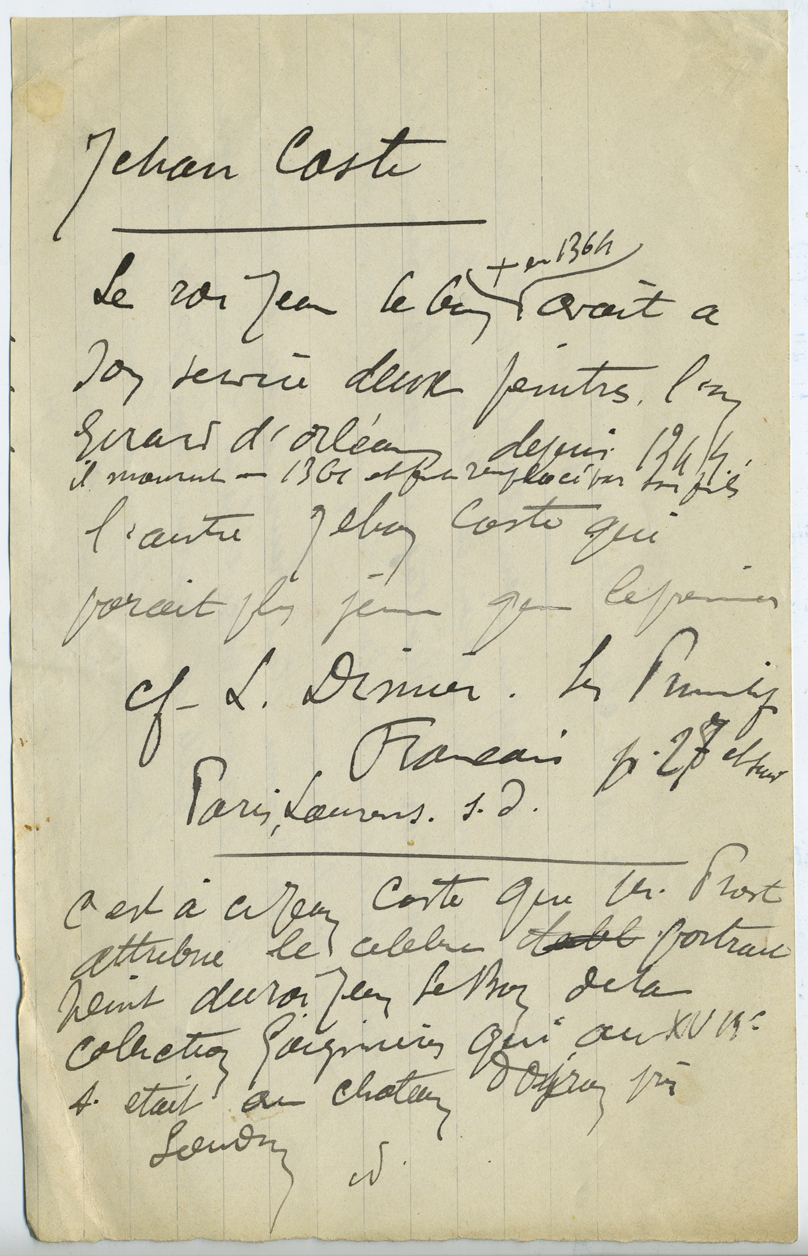 Jehan Coste
+ en 1364
Le roi Jean le bon avait a
son service deux peintres, l'un
Girard d'orléans depuis 1344.
il mourut en 1361 et fut remplacé par son fils
l'autre Jehan Coste qui
parait plus jeune que le premier
cf. L. Dimier. Les Primitifs
Francais p. 27 et suiv
Paris, Laurens. s. d.
C'est à ce Jean Coste que Mr. Prost
attribue le celebre portrait
peint du roi Jean Le Bon de la
collection Gaignières qui au XVII e
s. etait au chateau d'Oyron près
Loudun id.